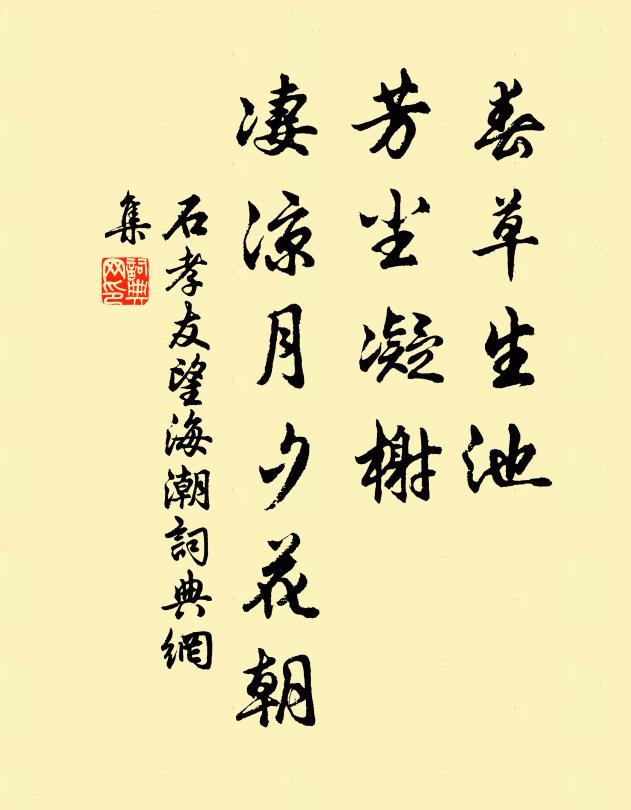 春草生池
芳尘凝榭
凄涼月夕花朝
石孝友望海潮詞典網
集
詞典
网印